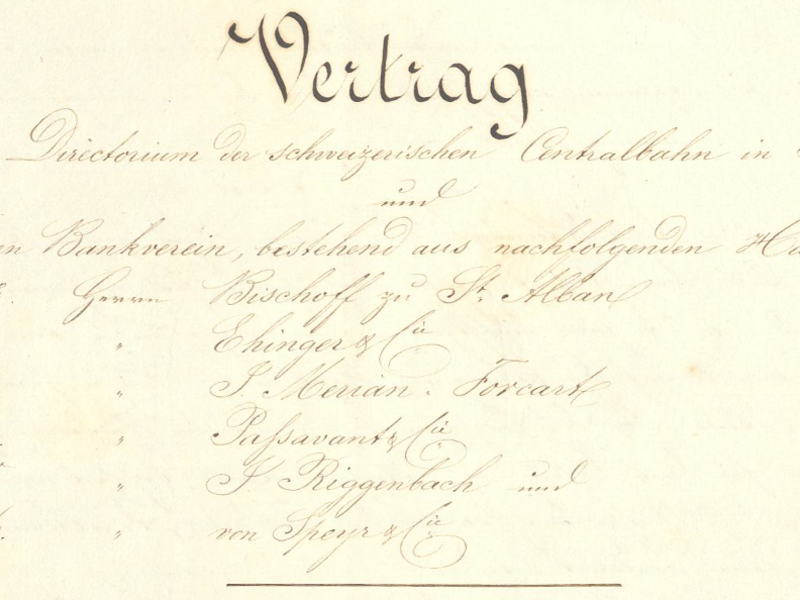 Vertrag
Directorium der schweizerischen Centralbahn in
und
en Bankverein, bestehend aus nachfolgenden
Herrn Bischoff zu St. Alban
" Ehinger & Cie
" J. Merian. Forcart
" Paſsavant & Cie
" J. Riggenbach und
" von Speyr & Cie